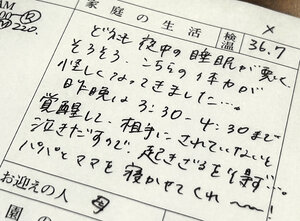 AM
220.
家庭の生活
検温
36.7
どうも夜中の睡眠が悪く
そろそろ、こちらの体力が
怪しくなってきました…。
昨晩は 3:30-4:30まで
覚醒して、相手にされていないと
泣きだすので、起きざるを得ず…。
パパとママを寝かせてくれ〜〜!
お迎えの人
母
園の